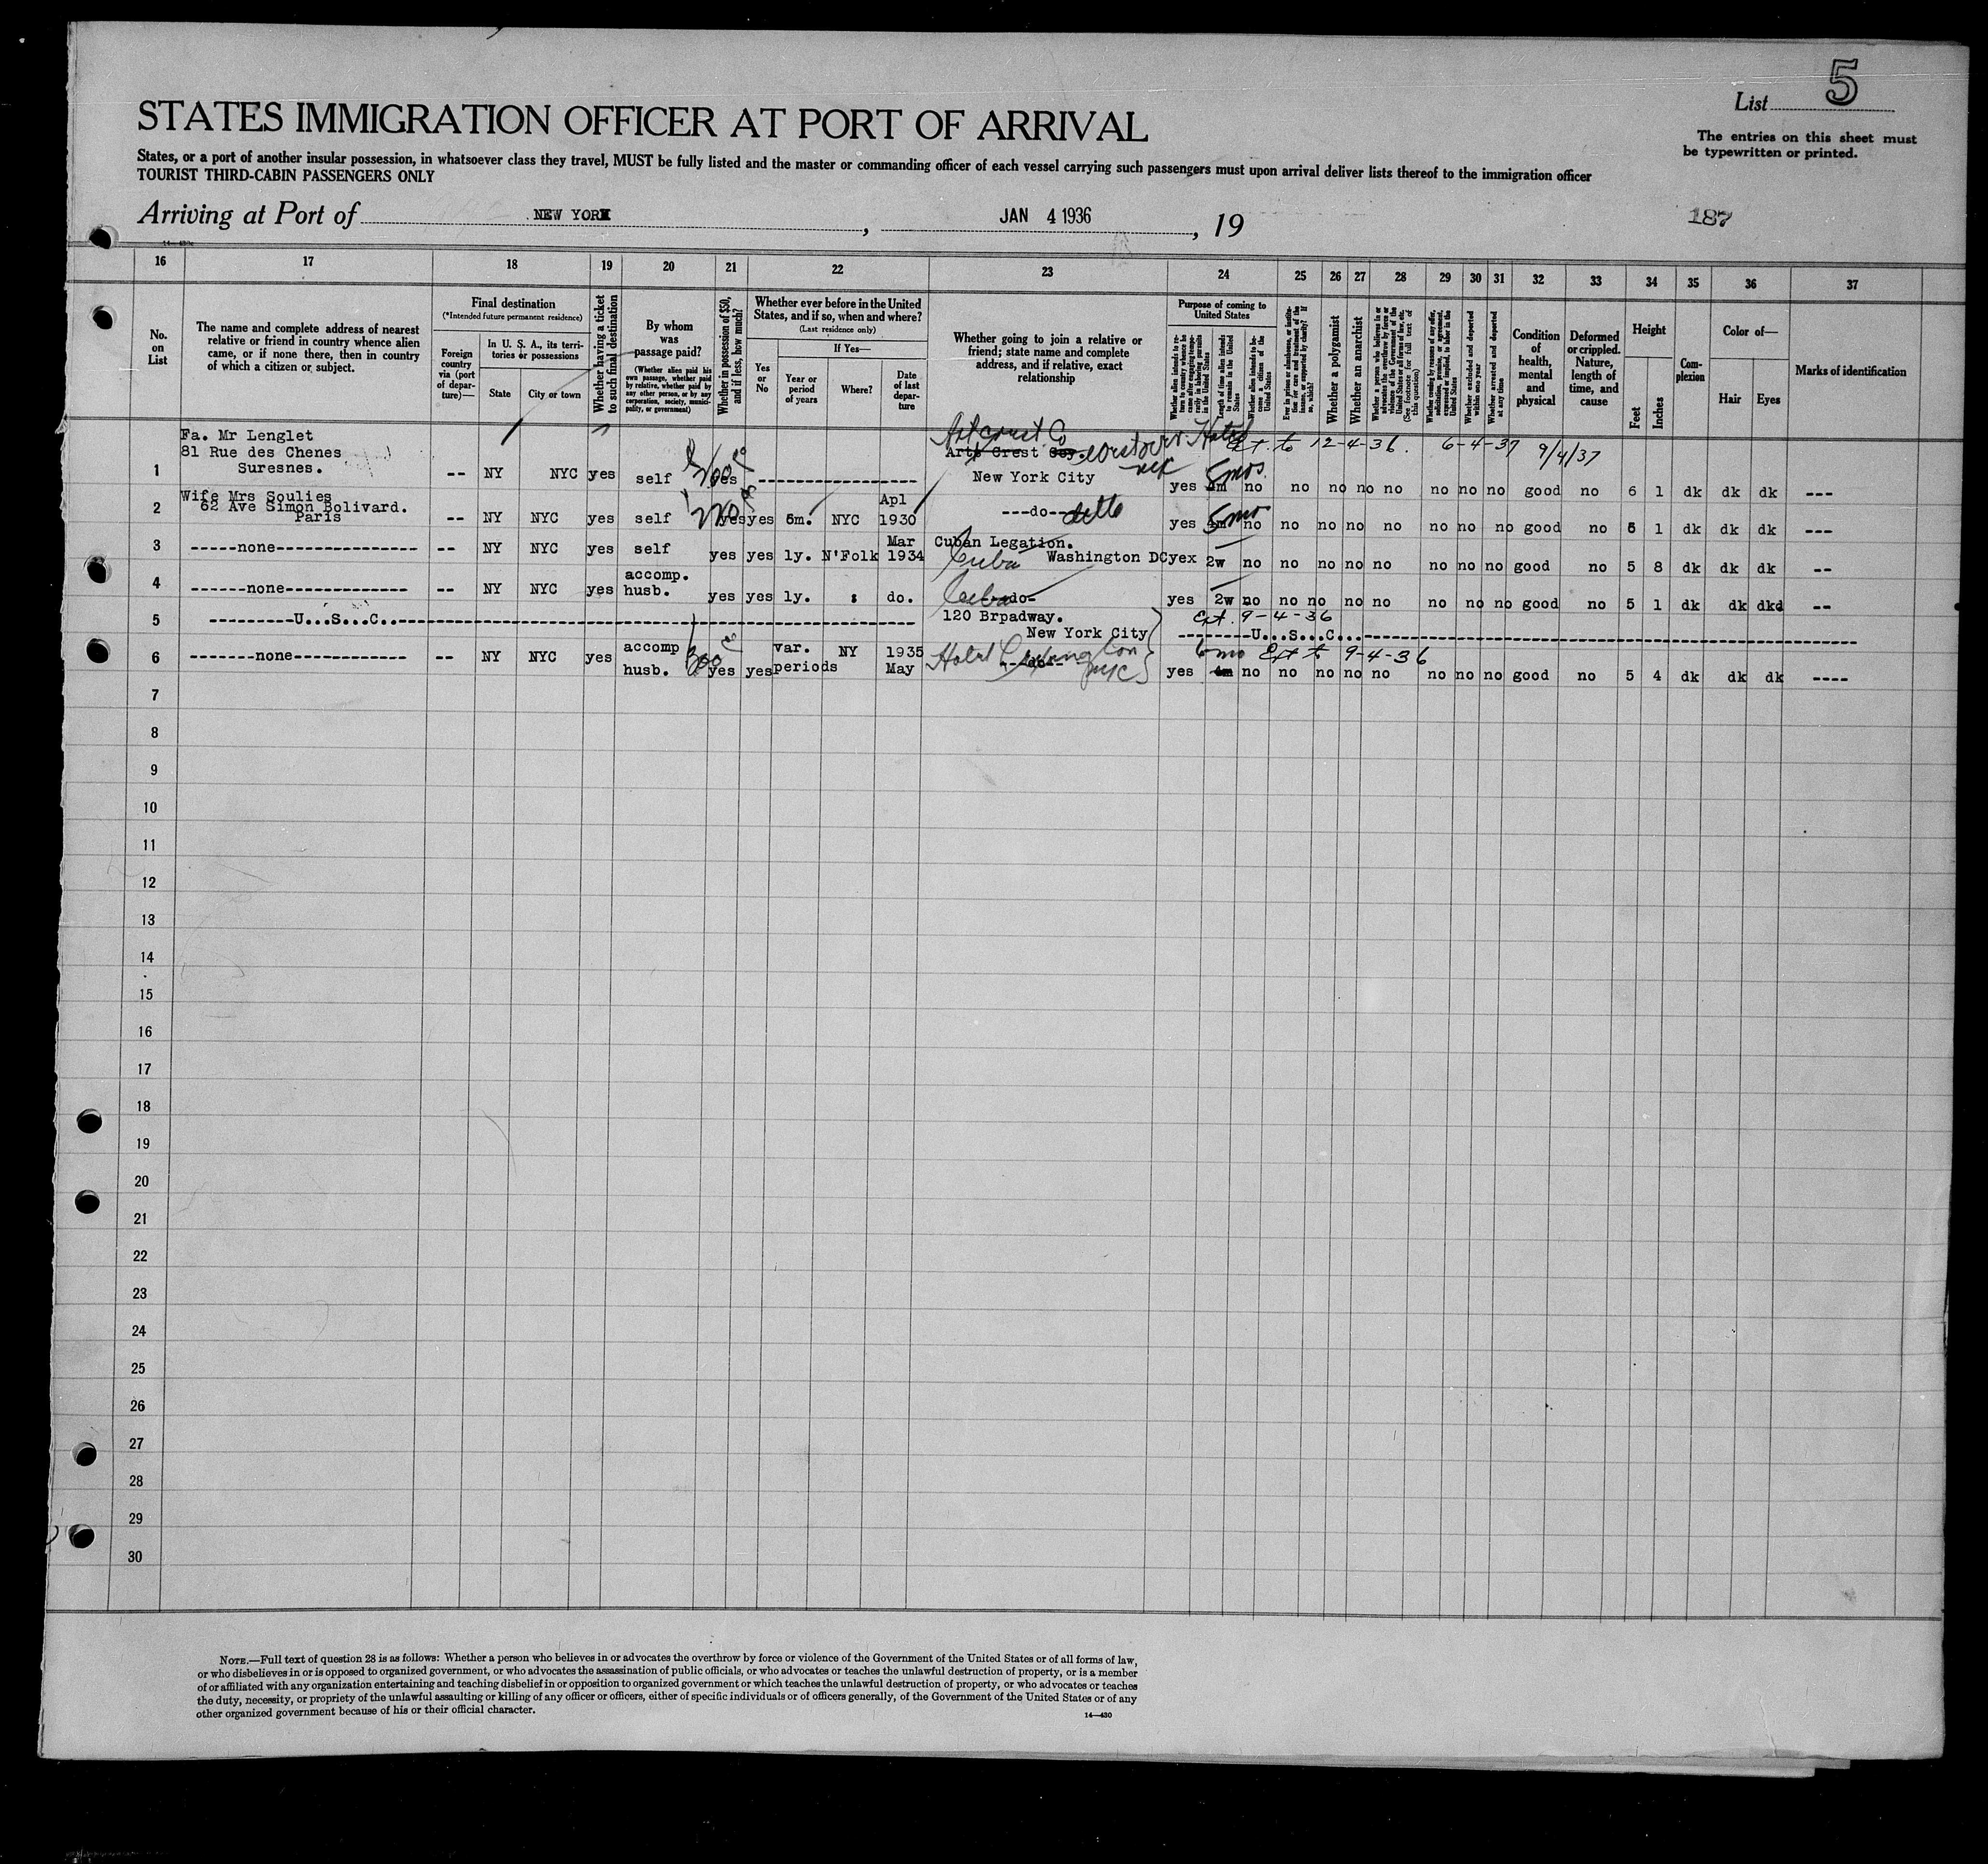 List 5
STATES IMMIGRATION OFFICER AT PORT OF ARRIVAL
The entries on this sheet must
be typewritten or printed.
States, or a port of another insular possession, in whatsoever class they travel, MUST be fully listed and the master or commanding officer of each vessel carrying such passengers must upon arrival deliver lists thereof to the immigration officer
TOURIST THIRD-CABIN PASSENGERS ONLY
Arriving at Port of NEW YORK, JAN 4 1936, 19
187
16 17 18 19 20 21 22 23 24 25 26 27 28 29 30 31 32 33 34 35 36 37
No.
on
List
The name and complete address of nearest
relative or friend in country whence alien
came, or if none there, then in country
of which a citizen or subject.
Final destination
(*Intended future permanent residence)
Foreign
country
via (port
of depar-
ture)—
In U. S. A., its terri-
tories or possessions
State
City or town
Whether having a ticket
to such final destination
By whom
was
passage paid?
(Whether alien paid his
own passage, whether paid
by relative, whether paid by
any other person, or by any
corporation, society, munici-
pality, or government)
Whether in possession of $50,
and if less, how much?
Whether ever before in the United
States, and if so, when and where?
(Last residence only)
Yes
or
No
If Yes—
Year or
period
of years
Where?
Date
of last
depar-
ture
Whether going to join a relative or
friend; state name and complete
address, and if relative, exact
relationship
Purpose of coming to
United States
Whether alien intends to re-
turn to country whence he
came after engaging tempo-
rarily in laboring pursuits
in the United States
Length of time alien intends
to remain in the United
States
Whether alien intends to be-
come a citizen of the
United States
Ever in prison or almshouse, or institu-
tion for care and treatment of the
insane, or supported by charity? If
so, which?
Whether a polygamist
Whether an anarchist
Whether a person who believes in or
advocates the overthrow by force or
violence of the Government of the
United States or all forms of law, etc.
(See footnote for full text of
this question)
Whether coming by reason of any offer,
solicitation, promise, or agreement,
expressed or implied, to labor in the
United States
Whether excluded and deported
within one year
Whether arrested and deported
at any time
Condition
of
health,
mental
and
physical
Deformed
or crippled.
Nature,
length of
time, and
cause
Height
Feet
Inches
Com-
plexion
Color of—
Hair
Eyes
Marks of identification
Fa. Mr Lenglet
81 Rue des Chenes
Suresnes.
1 -- NY NYC yes self yes ------------------
Art Crest Co
Arts Crest Cor.
New York City
Ext. to 12-4-36. 6-4-37 9/4/37
yes 5mos. no no no no no no no no good no 6 1 dk dk dk ---
Wife Mrs Soulies
62 Ave Simon Bolivard.
Paris
2 -- NY NYC yes self yes yes 6m. NYC Apl 1930 ---do--- ditto yes 5mo no no no no no no no no good no 5 1 dk dk dk ---
3 -----none----------------- -- NY NYC yes self yes yes 1y. N'Folk Mar 1934 Cuban Legation.
Cuba Washington DC yex 2w no no no no no no no no good no 5 8 dk dk dk --
4 ------none-------------- -- NY NYC yes accomp. husb. yes yes 1y. : do. Cuba -do- yes 2w no no no no no no no no good no 5 1 dk dk dkd --
5 ---------U...S...C..--- 120 Brpadway.
New York City
Ext. 9-4-36
---------U...S...C...---
6 -------none------------- -- NY NYC yes accomp husb. 300 yes yes var. periods NY 1935 May Hotel Lexington NYC ---do---
6mo Ext to 9-4-36
yes 4m no no no no no no no no good no 5 4 dk dk dk ----
7
8
9
10
11
12
13
14
15
16
17
18
19
20
21
22
23
24
25
26
27
28
29
30
NOTE.—Full text of question 28 is as follows: Whether a person who believes in or advocates the overthrow by force or violence of the Government of the United States or of all forms of law,
or who disbelieves in or is opposed to organized government, or who advocates the assassination of public officials, or who advocates or teaches the unlawful destruction of property, or is a member
of or affiliated with any organization entertaining and teaching disbelief in or opposition to organized government or which teaches the unlawful destruction of property, or who advocates or teaches
the duty, necessity, or propriety of the unlawful assaulting or killing of any officer or officers, either of specific individuals or of officers generally, of the Government of the United States or of any
other organized government because of his or their official character.
14—430